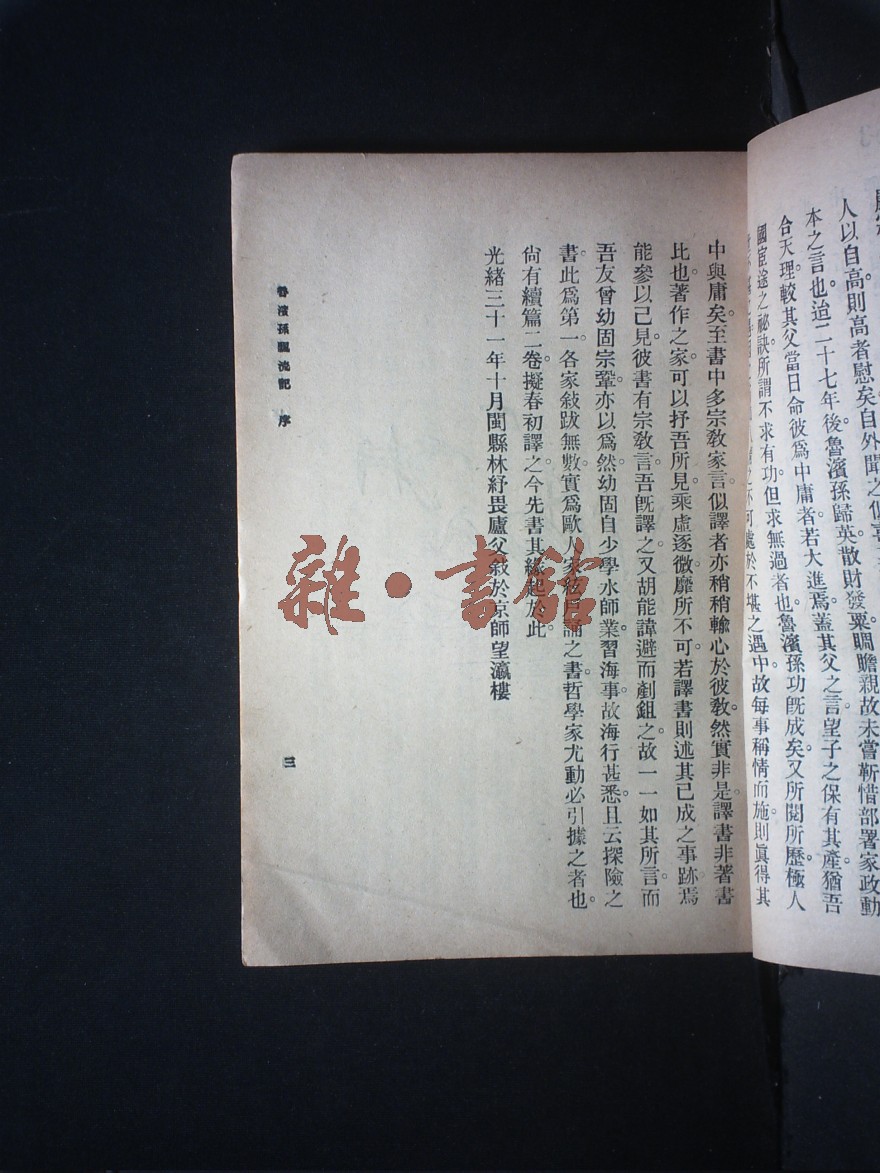 人以自高則高者慰矣自外聞之似
本之言也迨二十七年後。魯濱孫歸英散財發粟。賙贍親故。未嘗靳惜部署家政動
合天理。較其父當日命彼爲中庸者若大進焉。蓋其父之言望子之保有其產。猶吾
國宦途之祕訣。所謂不求有功但求無過者也。魯濱孫功旣成矣。又所閱所歷極人
不可處於不堪之遇中。故每事稱情而施。則眞得其
中與庸矣。至書中多宗敎家言。似譯者亦稍稍輸心於彼敎。然實非是。譯書非著書
比也。著作之家可以抒吾所見。乘虛逐微。靡所不可。若譯書則述其已成之事跡。焉
能參以己見。彼書有宗敎言。吾旣譯之。又胡能諱避而剷鉏之。故一一如其所言。而
吾友曾幼固宗鞏亦以爲然。幼固自少學水師業。習海事。故海行甚悉。且云探險之
書。此爲第一。各家敍跋無數。實爲歐人家絃戶誦之書。哲學家尤動必引據之者也。
尙有續篇二卷。擬春初譯之。今先書其緣起於此。
光緒三十一年十月閩縣林紓畏廬父敍於京師望瀛樓
魯濱孫飄流記 序
三
雜·書館